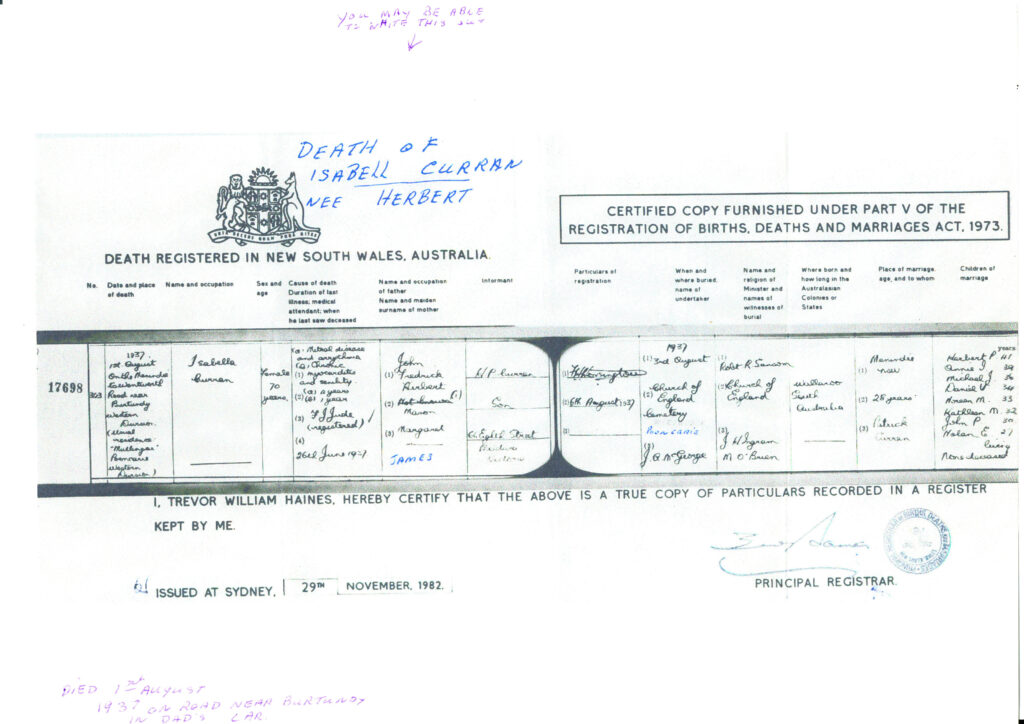 YOU MAY BE ABLE
TO WRITE THIS OUT
DEATH OF
ISABELL CURRAN
NEE HERBERT
CERTIFIED COPY FURNISHED UNDER PART V OF THE
REGISTRATION OF BIRTHS, DEATHS AND MARRIAGES ACT, 1973.
DEATH REGISTERED IN NEW SOUTH WALES, AUSTRALIA.
No.
Date and place
of death
Name and occupation
Sex and
age
Cause of death
Duration of last
illness; medical
attendant; when
he last saw deceased
Name and occupation
of father
Name and maiden
surname of mother
Informant
Particulars of
registration
When and
where buried;
name of
undertaker
Name and
religion of
Minister and
names of
witnesses of
burial
Where born and
how long in the
Australasian
Colonies or
States
Place of marriage,
age, and to whom
Children of
marriage
17698
1937
1st August
On the Menindee
Wentworth
Road near
Burtundy
Western
Division
(Usual
residence
Pomona
Western
Division)
Isabella
Curran
Female
70
years
(a. Mitral disease
and arrythmia
(b. Chronic
(1) myocarditis
and senility
(2) (a) 2 years
(b) 1 year
(3) F J Jude
(registered)
(4)
26th June 1937
John
(1) Fredrick
Herbert
(2) Not known
Mason
(3) Margaret
JAMES
H P Curran
Son
Eighth Street
Mildura
Victoria
(1)
(2) 6th August 1937
(3)
1937
(1) 3rd August
Church of
(2) England
Cemetery
J. A. McGeorge
(1)
Robt R Sansom
(2) Church of
England
(3)
J W Ingram
M O'Brien
Wallaroo
South
Australia
Menindie
(1) NSW
(2) 25 years
(3) Patrick
Curran
years
Herbert P 41
Annie I 39
Michael J 36
Daniel V 34
Noreen M. 33
Kathleen M. 32
John P 30
Nolan E. 27
living
None deceased
I, TREVOR WILLIAM HAINES, HEREBY CERTIFY THAT THE ABOVE IS A TRUE COPY OF PARTICULARS RECORDED IN A REGISTER
KEPT BY ME.
ISSUED AT SYDNEY, 29TH NOVEMBER, 1982.
PRINCIPAL REGISTRAR.
DIED 1st AUGUST
1937 ON ROAD NEAR BURTUNDY
IN DAD'S CAR.